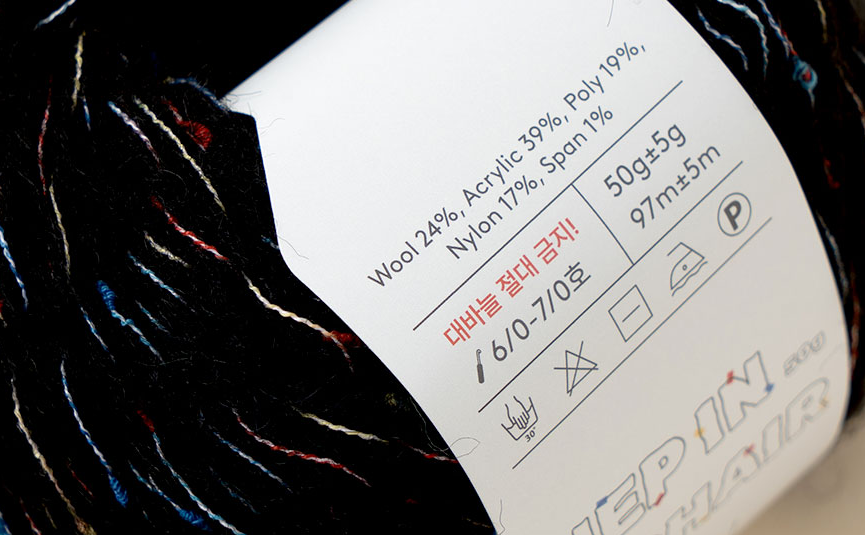 Wool 24%, Acrylic 39%, Poly 19%,
Nylon 17%, Span 1%
대바늘 절대 금지!
6/0-7/0호
50g±5g
97m±5m
30°
P
50g
IN
HAIR